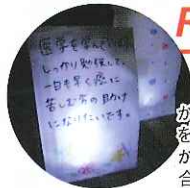 医学を学んでいます
しっかり勉強して
一日も早く癌に
苦しむ方の助け
になりたいです。
が
を
か
合